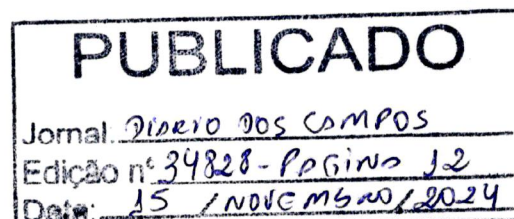 PUBLICADO
Jornal DIARIO DOS CAMPOS
Edição nº 34828 - PAGINA 12
Data: 15 / NOVEMBRO / 2024